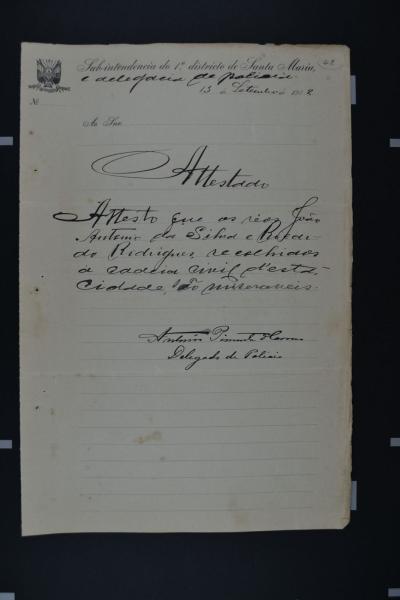 Sub-intendencia do 1º districto de Santa Maria,
e delegacia de policia
13 de Setembro de 190
Nº
Ao Snr.
Attestado
Attesto que os réos João
Antonio da Silva e
do Rodrigues, recolhidos
á cadeia civil d'esta
cidade, são miseraveis.
Antonio
Delegado de Policia